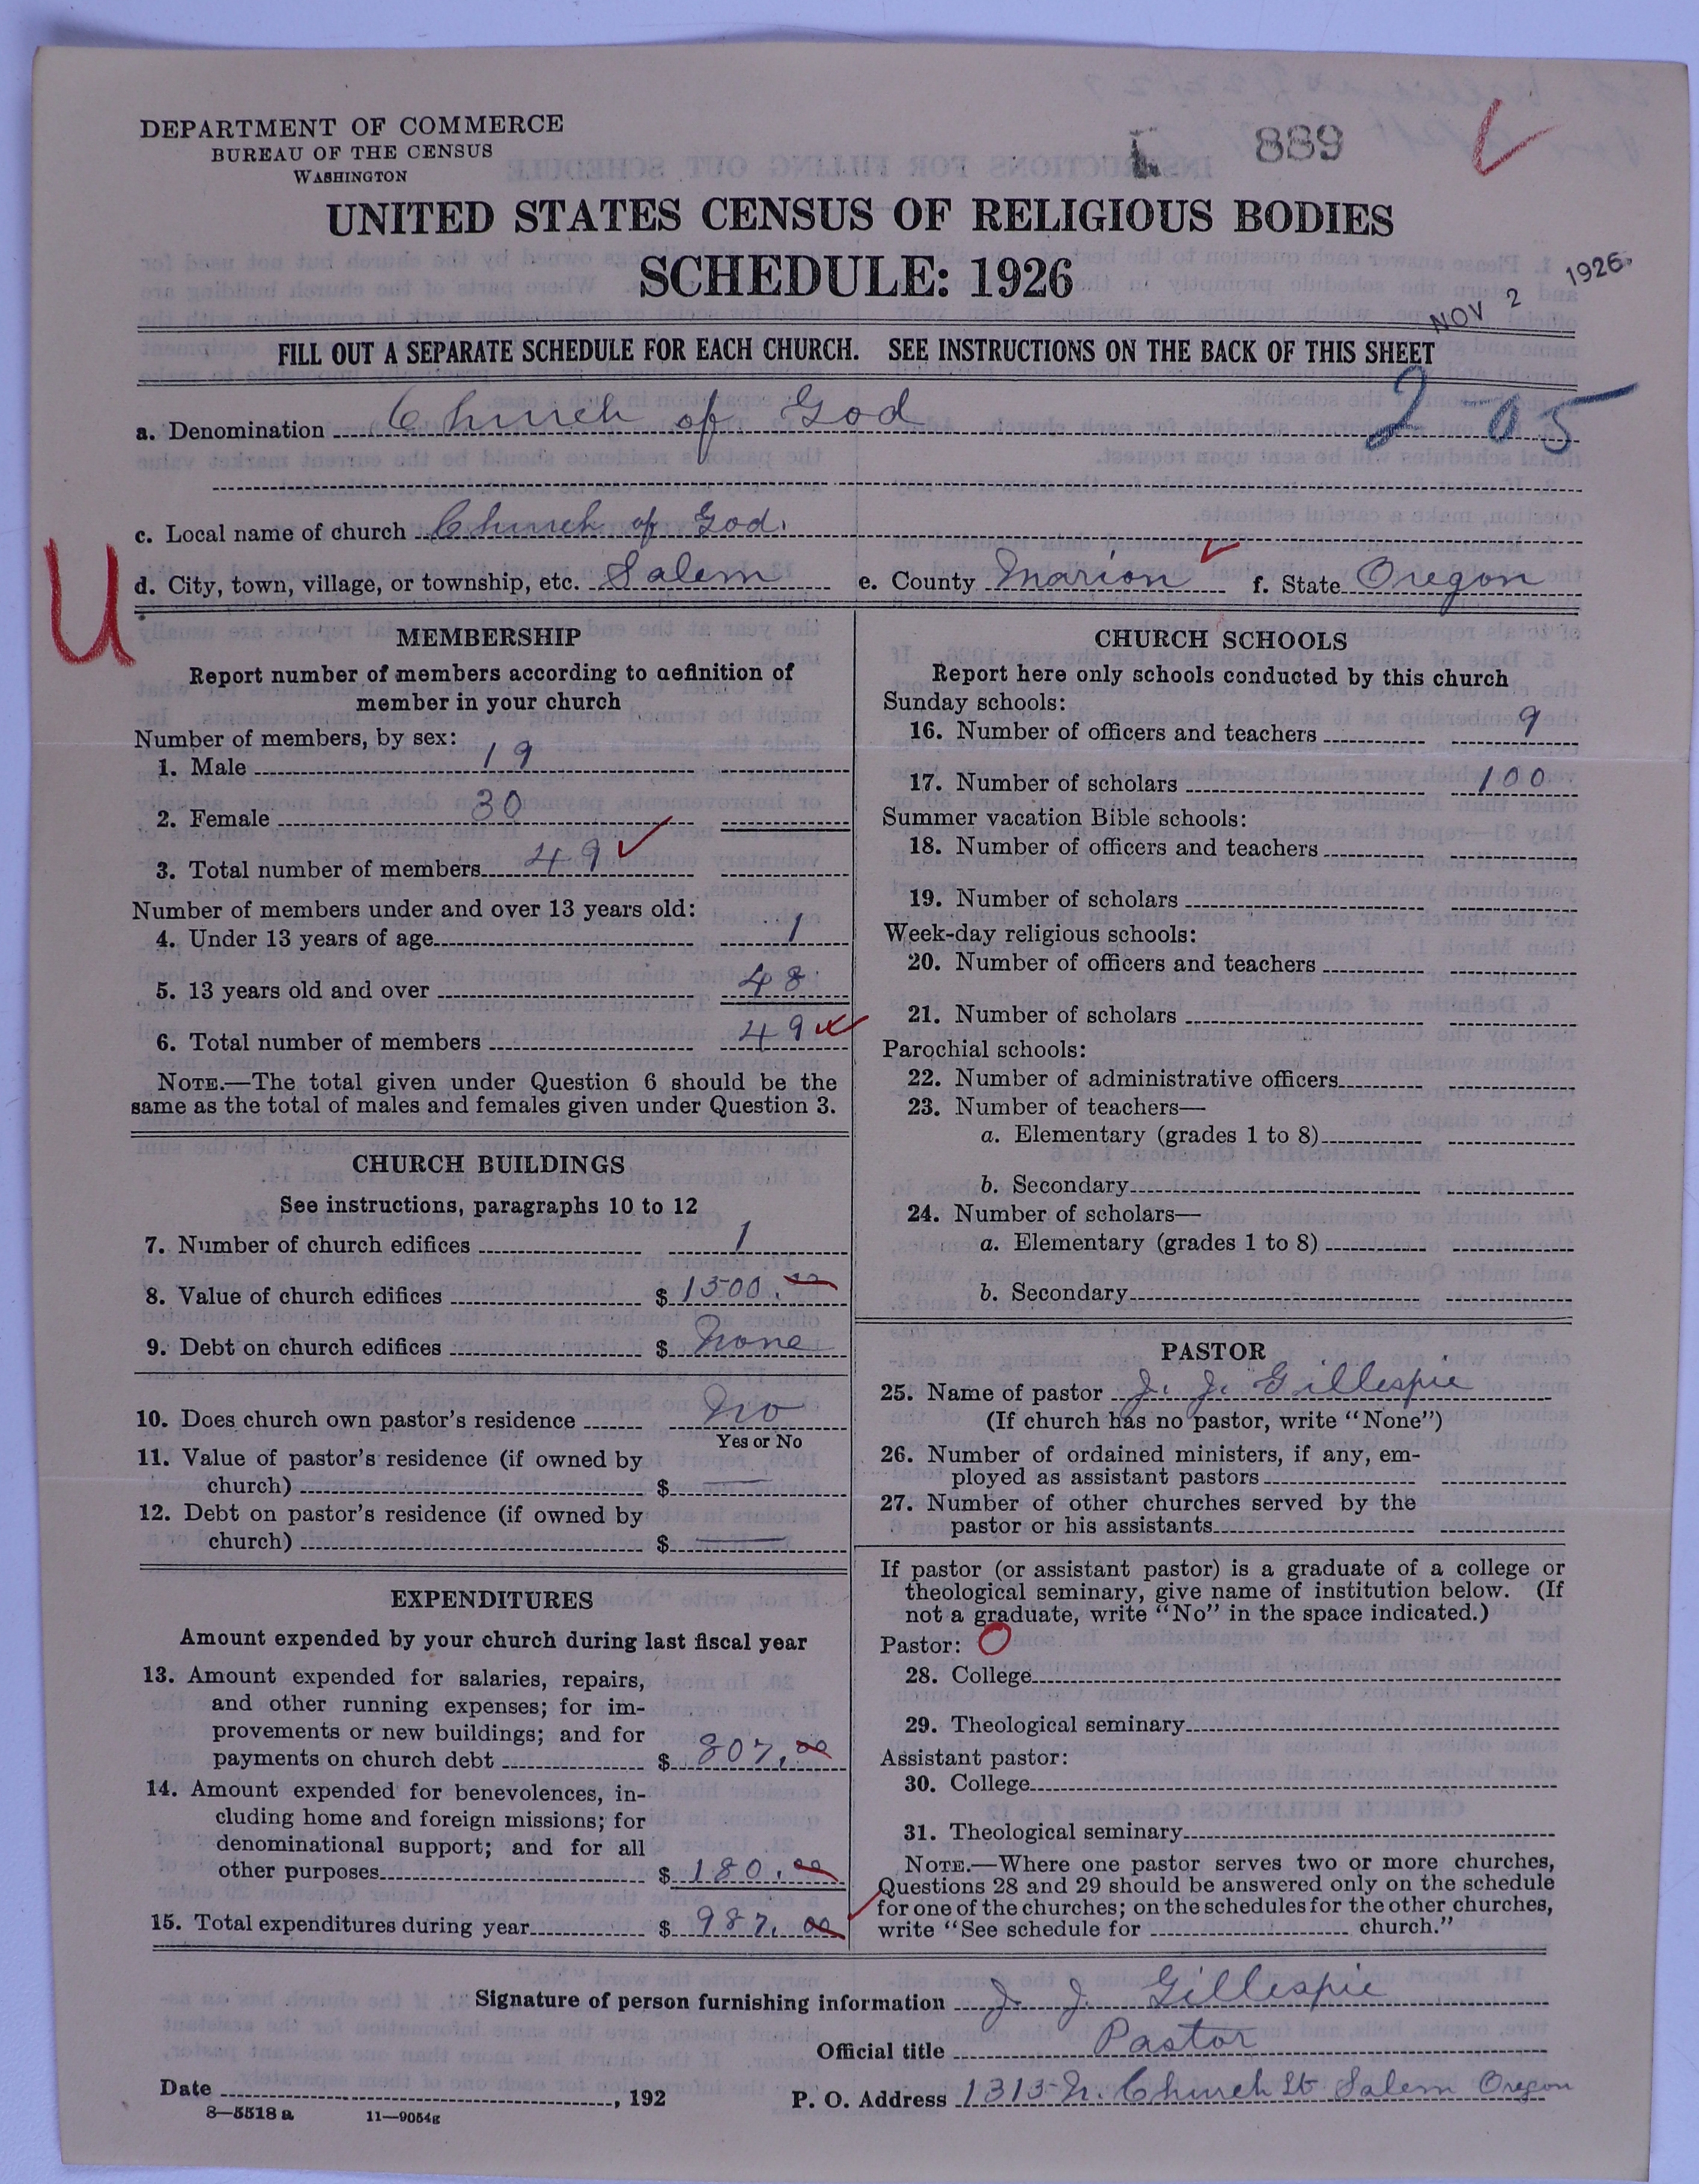 DEPARTMENT OF COMMERCE
BUREAU OF THE CENSUS
WASHINGTON
889
UNITED STATES CENSUS OF RELIGIOUS BODIES
SCHEDULE: 1926
NOV 2 1926
FILL OUT A SEPARATE SCHEDULE FOR EACH CHURCH. SEE INSTRUCTIONS ON THE BACK OF THIS SHEET
a. Denomination Church of God 2-05
c. Local name of church Church of God.
d. City, town, village, or township, etc. Salem e. County Marion f. State Oregon
U
MEMBERSHIP
Report number of members according to definition of
member in your church
Number of members, by sex:
1. Male 19
2. Female 30
3. Total number of members 49
Number of members under and over 13 years old:
4. Under 13 years of age 1
5. 13 years old and over 48
6. Total number of members 49
NOTE.—The total given under Question 6 should be the
same as the total of males and females given under Question 3.
CHURCH BUILDINGS
See instructions, paragraphs 10 to 12
7. Number of church edifices 1
8. Value of church edifices $ 1500.00
9. Debt on church edifices $ None
10. Does church own pastor's residence No
Yes or No
11. Value of pastor's residence (if owned by
church) $ —
12. Debt on pastor's residence (if owned by
church) $ —
EXPENDITURES
Amount expended by your church during last fiscal year
13. Amount expended for salaries, repairs,
and other running expenses; for im-
provements or new buildings; and for
payments on church debt $ 807.00
14. Amount expended for benevolences, in-
cluding home and foreign missions; for
denominational support; and for all
other purposes $ 180.00
15. Total expenditures during year $ 987.00
CHURCH SCHOOLS
Report here only schools conducted by this church
Sunday schools:
16. Number of officers and teachers 9
17. Number of scholars 100
Summer vacation Bible schools:
18. Number of officers and teachers
19. Number of scholars
Week-day religious schools:
20. Number of officers and teachers
21. Number of scholars
Parochial schools:
22. Number of administrative officers
23. Number of teachers—
a. Elementary (grades 1 to 8)
b. Secondary
24. Number of scholars—
a. Elementary (grades 1 to 8)
b. Secondary
PASTOR
25. Name of pastor J. J. Gillespie
(If church has no pastor, write "None")
26. Number of ordained ministers, if any, em-
ployed as assistant pastors
27. Number of other churches served by the
pastor or his assistants
If pastor (or assistant pastor) is a graduate of a college or
theological seminary, give name of institution below. (If
not a graduate, write "No" in the space indicated.)
Pastor: O
28. College
29. Theological seminary
Assistant pastor:
30. College
31. Theological seminary
NOTE.—Where one pastor serves two or more churches,
Questions 28 and 29 should be answered only on the schedule
for one of the churches; on the schedules for the other churches,
write "See schedule for church."
Signature of person furnishing information J. J. Gillespie
Official title Pastor
Date , 192 P. O. Address 1315 N. Church St Salem Oregon
8—5518 a 11—9054g